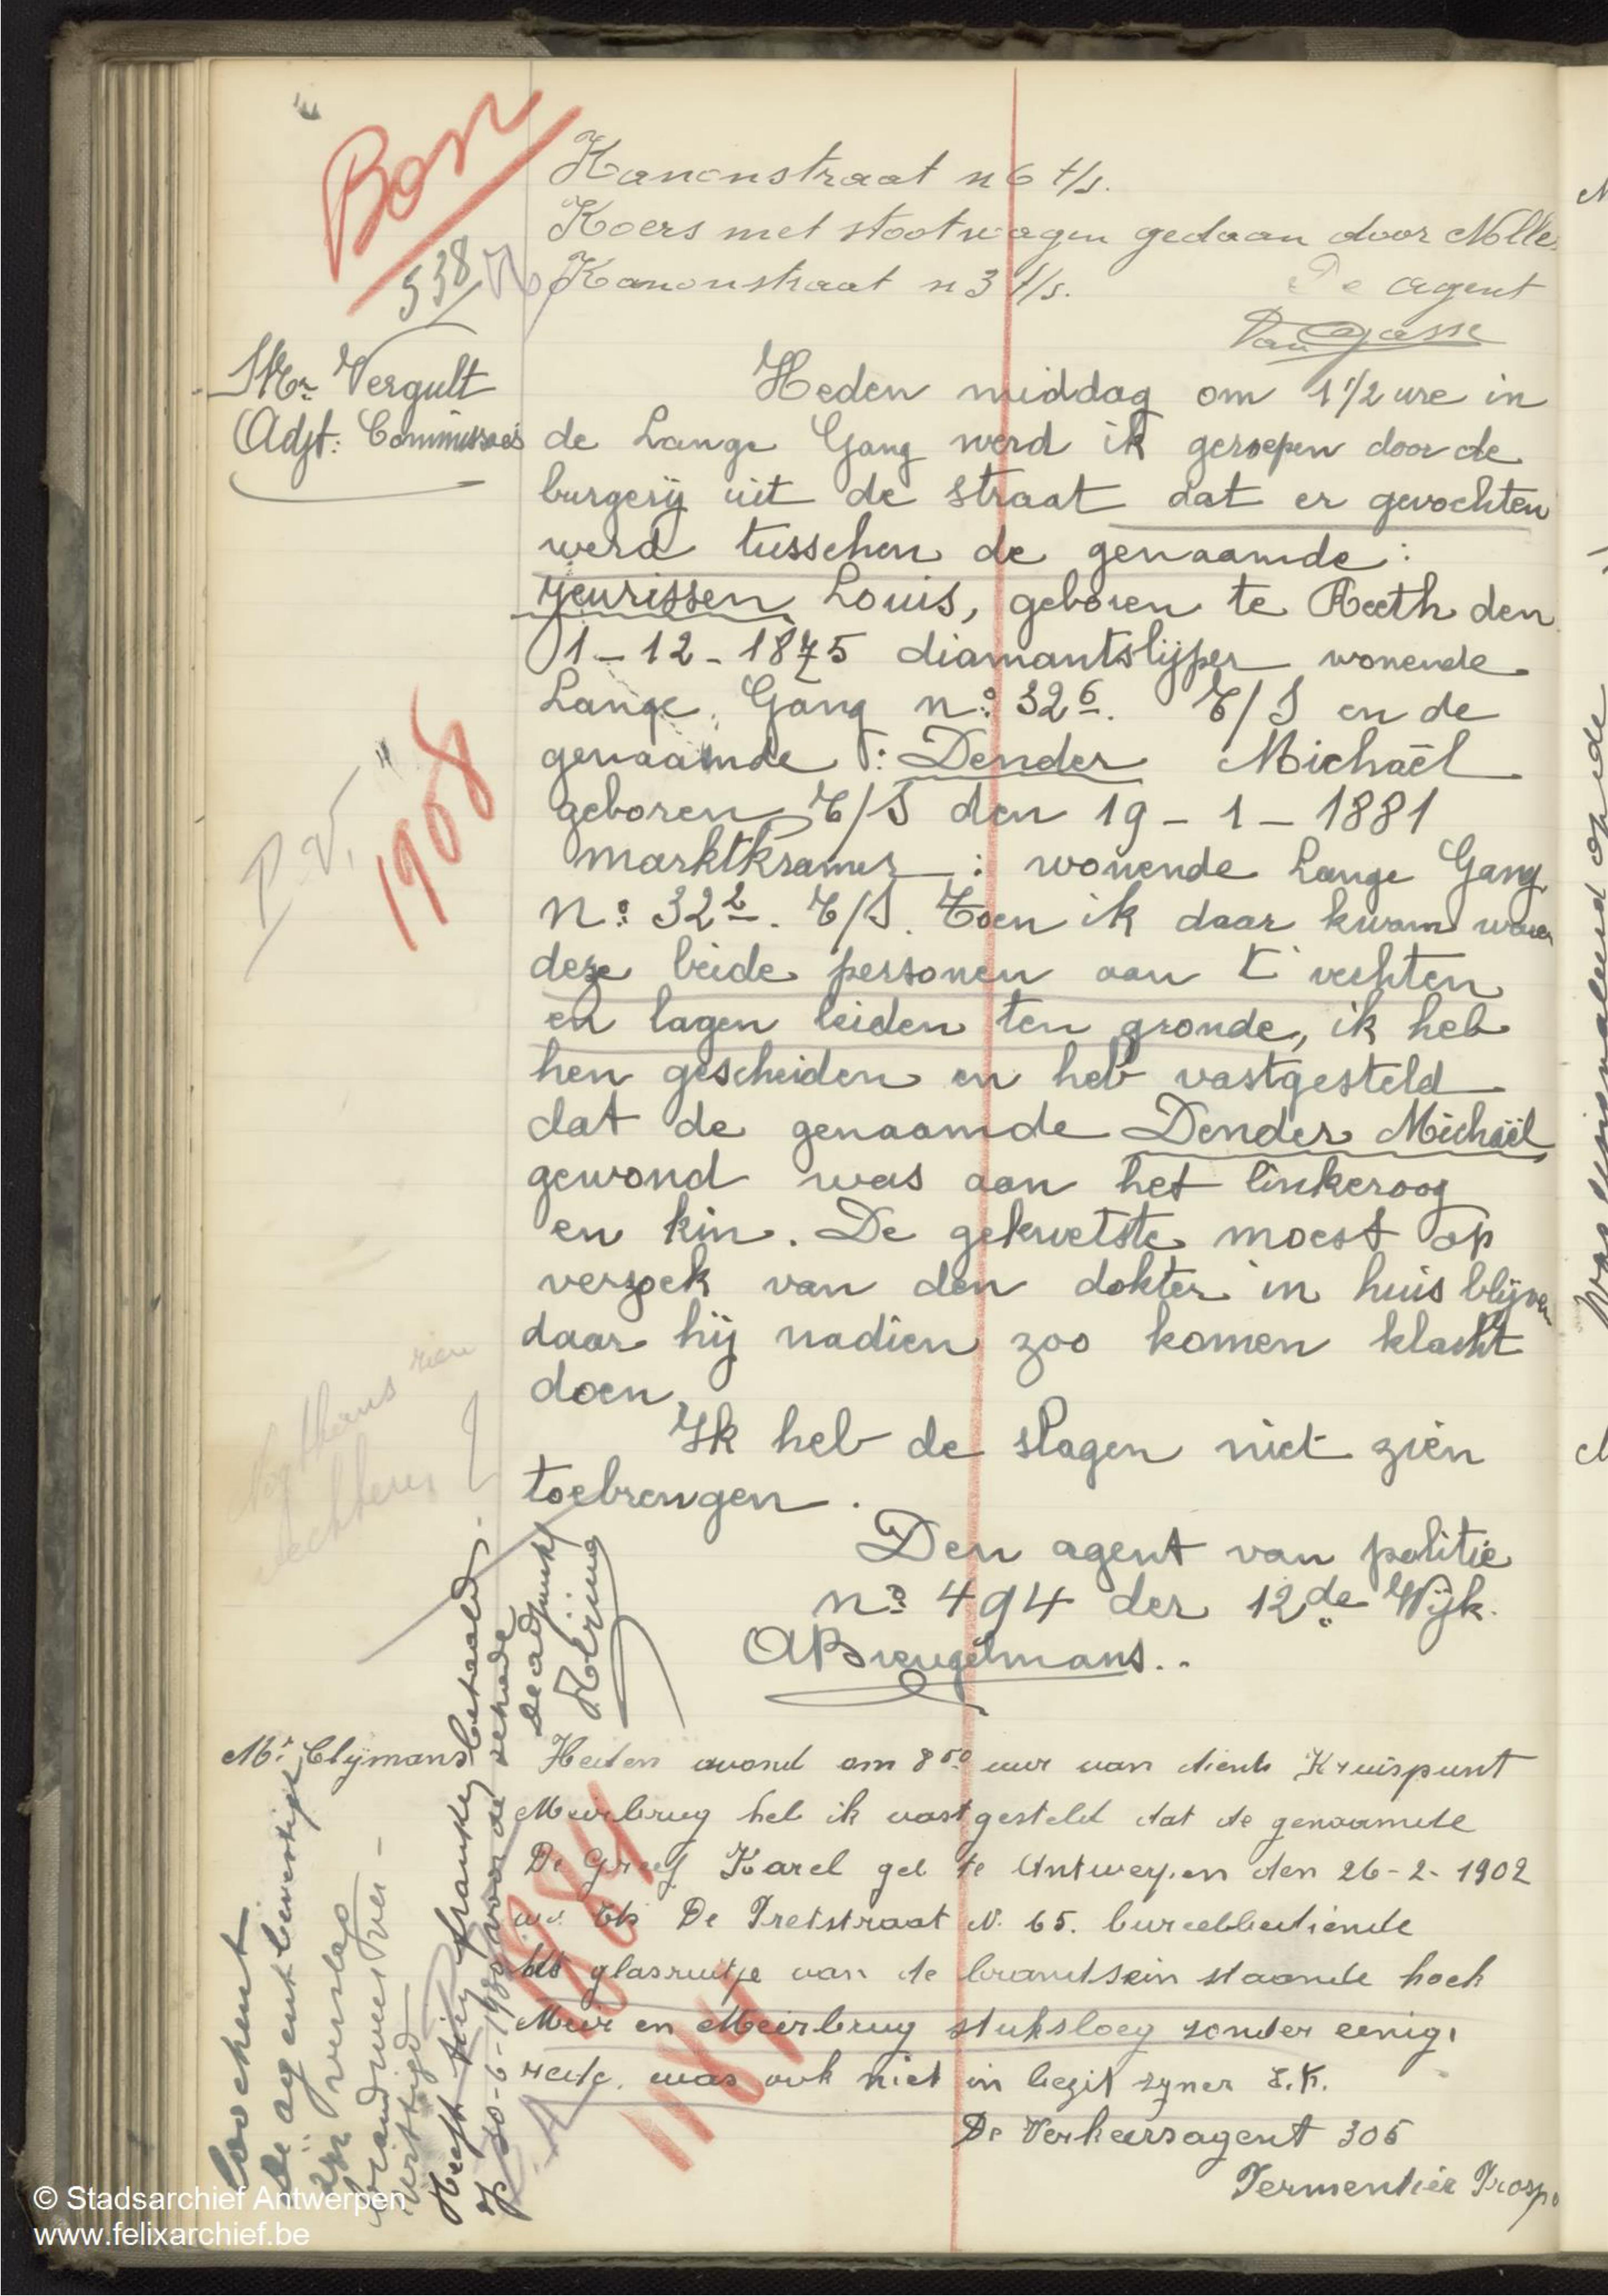 Bon
538
Kanonstraat n 6 t/s.
Koers met stootwagen gedaan door Nolle
Kanonstraat n 3 t/s. De agent
Van Gasse
Mr Vergult
Adjt: Commissaris
Heden middag om 1 1/2 ure in
de Lange Gang werd ik geroepen door de
burgerij uit de straat dat er gevochten
werd tusschen de genaamde :
Yeurissen Louis, geboren te Reeth den
1 - 12 - 1875 diamantslijper wonende
Lange Gang n:º 32 6. T/S en de
genaamde : Dender Michaël
geboren T/S den 19 - 1 - 1881
marktkramer : wonende Lange Gang
Nº: 32 2. T/S. Toen ik daar kwam waren
deze beide personen aan t' vechten
en lagen beiden ten gronde, ik heb
hen gescheiden en heb vastgesteld
dat de genaamde Dender Michaël
gewond was aan het linkeroog
en kin. De gekwetste moest op
verzoek van den dokter in huis blijven
daar hij nadien zoo komen klacht
doen.
Ik heb de slagen niet zien
toebrengen.
Den agent van politie
nº 494 der 12de Wijk.
A Breugelmans..
P.V.
1908
Mr Clijmans
Heden avond om 8 50 uur van dienst Kruispunt
Meirbrug heb ik vastgesteld dat de genaamde
De Greef Karel geb te Antwerpen den 26-2-1902
wo. t/s De Pretstraat N. 65. bureelbediende
het glasruitje van de brandsein staande hoek
Meir en Meirbrug stuksloeg zonder eenige
rede. was ook niet in bezit zyner E.K.
De Verkeersagent 306
Permentier Prosp
11884
1184
loochent
de agent bevestigt
zijn verslag
brandweer
verstigd
Heeft franks betaald.
op 30-6-1930 voor de schade
de adjunkt